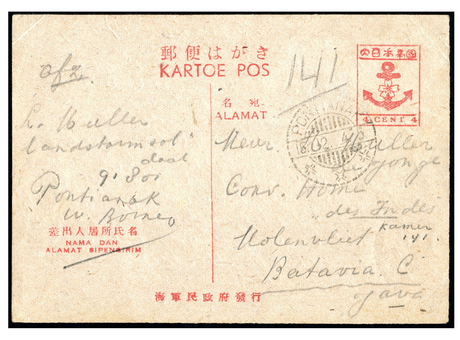 郵便はがき
KARTOE POS
大日本帝國
4 CENT 4
名宛
ALAMAT
141
PONTIANAK
L. Muller
Landstormsol
daat
Pontianak
W. Borneo
差出人居所氏名
NAMA DAN
ALAMAT SIPENGIRIM
Mevr. Muller
de Jonge
Conv. Home
"des Indes
Molenvliet Kamer
141.
Batavia C
Java
海軍民政府發行